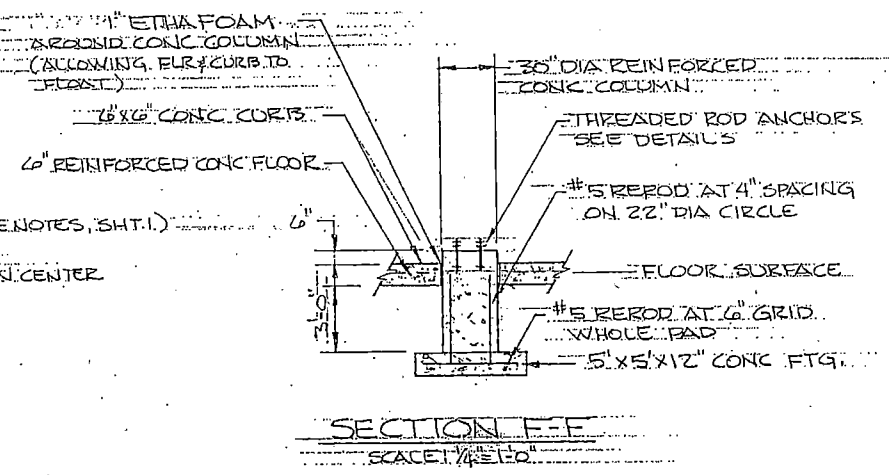 1" ETHAFOAM
AROUND CONC COLUMN
(ALLOWING FLR & CURB TO
FLOAT)
6"X6" CONC CURB
6" REINFORCED CONC FLOOR
E NOTES, SHT. 1.)
N CENTER
6"
3'-0"
30" DIA REINFORCED
CONC COLUMN
THREADED ROD ANCHORS
SEE DETAILS
#5 REROD AT 4" SPACING
ON 22" DIA CIRCLE
FLOOR SURFACE
#5 REROD AT 6" GRID
WHOLE PAD
5'X5'X12" CONC FTG.
SECTION F-F
SCALE: 1/4"=1'-0"